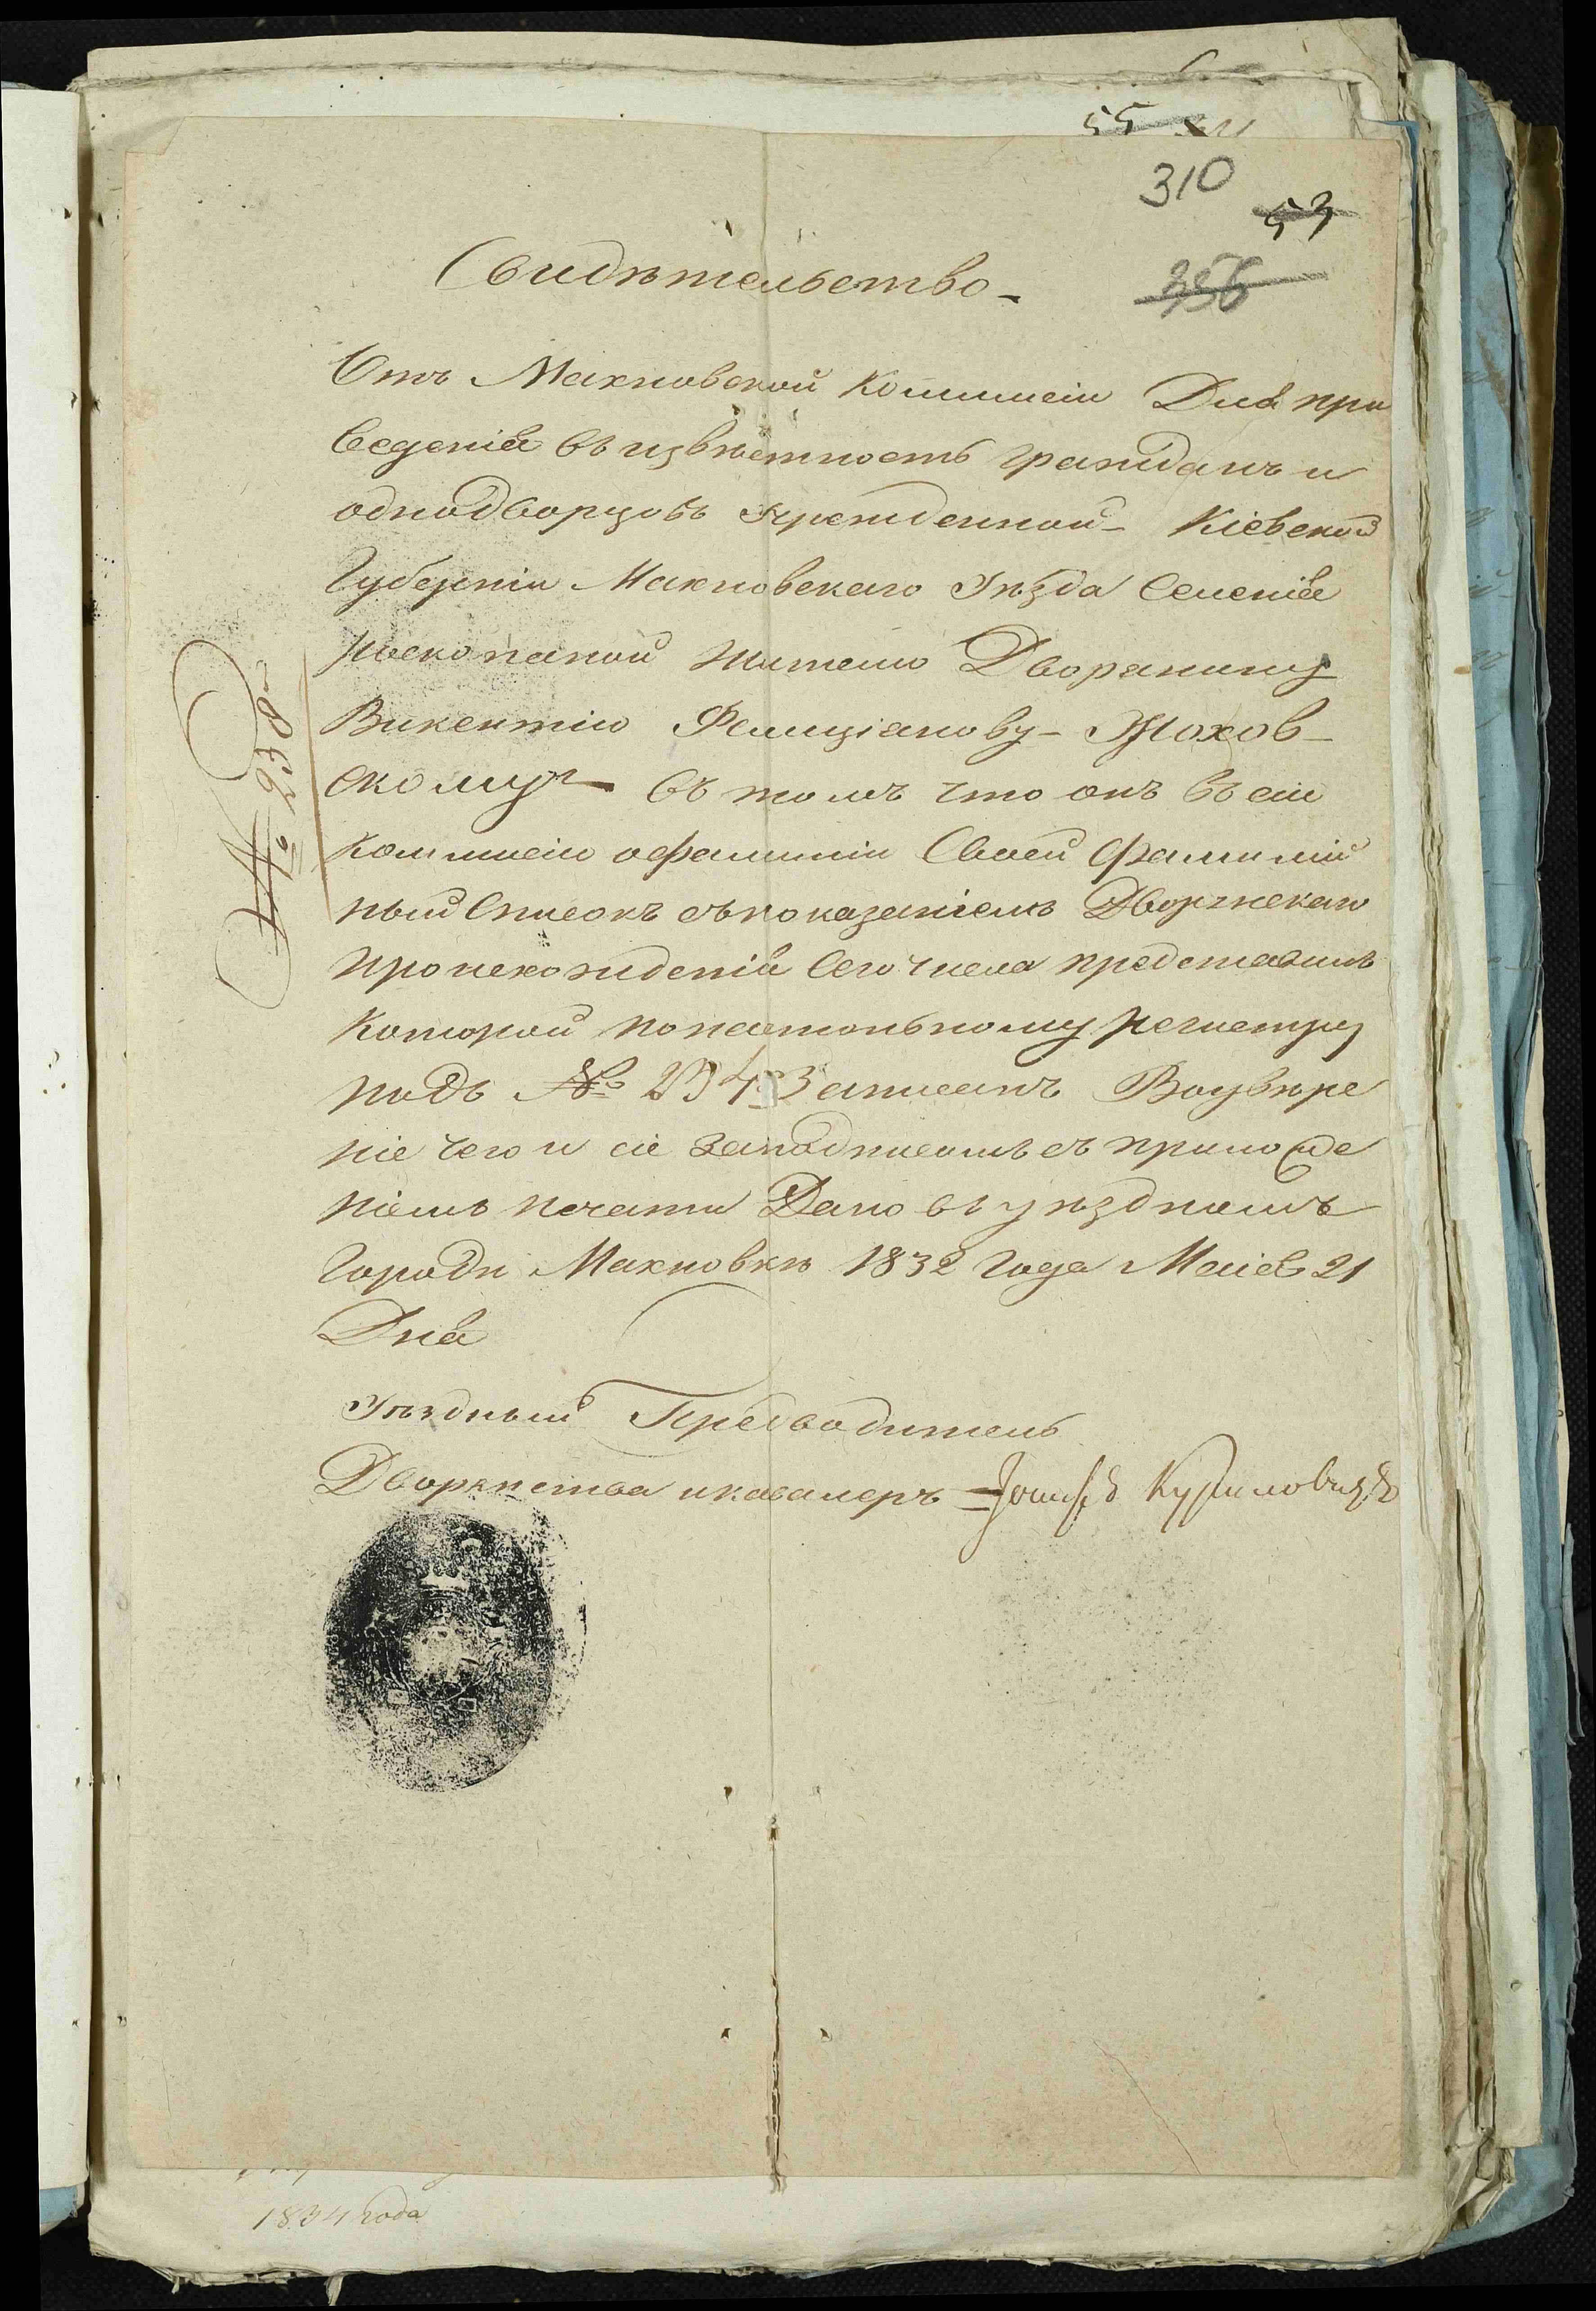 55
310
53
356
Свидѣтельство
Отъ Махновской Коммисіи Для при
веденія въ извѣстность гражданъ и
однодворцовъ учрежденной Кіевской
Губерніи Махновскаго Уѣзда Селенія
жителю Дворянину
Викентію Фелиціанову
скому въ томъ что онъ въ сіи
Коммисіи о фамиліи Своей Фамилій
ный Списокъ съ показаніемъ Дворянскаго
Происхожденія Сего числа представилъ
Которой по настольному регистру
подъ № 2343 записанъ Воувѣре
ніе чего и сіе за подписомъ съ приложе
ніемъ печати Дано въ уѣздномъ
Городѣ Махновкѣ 1832 Года Маія 21
Дня
Уѣздный Предводитель
Дворянства и кавалеръ
№ 2380
1834 года